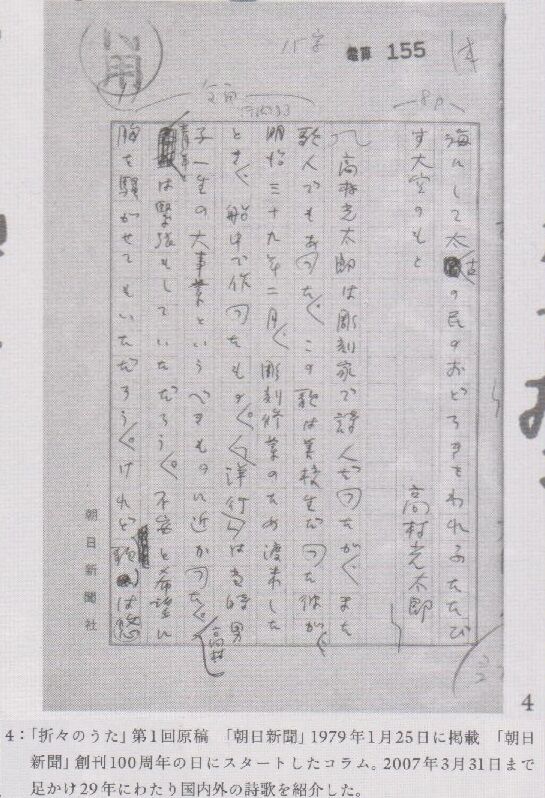 15字
電算 155
海にして太古の民のおどろきをわれふたたび
す大空のもと
高村光太郎
高村光太郎は彫刻家で詩人だつたが、また
歌人でもあつた。この歌は美校生だつた彼が、
明治三十九年二月、彫刻修業のため渡米した
とき、船中で作つたもの。「洋行」は当時男
子一生の大事業というべきものに近かつた。高村
青年は緊張もしていただろう。不安と希望に
胸を騒がせてもいただろう。けれど歌は悠
朝日新聞社
4
4:「折々のうた」第1回原稿 「朝日新聞」1979年1月25日に掲載 「朝日
新聞」創刊100周年の日にスタートしたコラム。2007年3月31日まで
足かけ29年にわたり国内外の詩歌を紹介した。